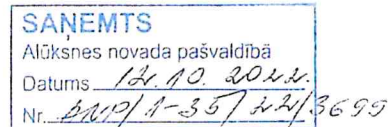 SAŅEMTS
Alūksnes novada pašvaldībā
Datums 12.10.2022.
Nr. ANP/1-35/22/3699